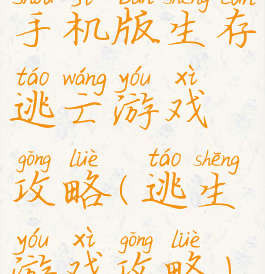 shǒu jī bǎn shēng cún
手机版生存
táo wáng yóu xì
逃亡游戏
gōng lüè táo shēng
攻略(逃生
yóu xì gōng lüè
游戏攻略)